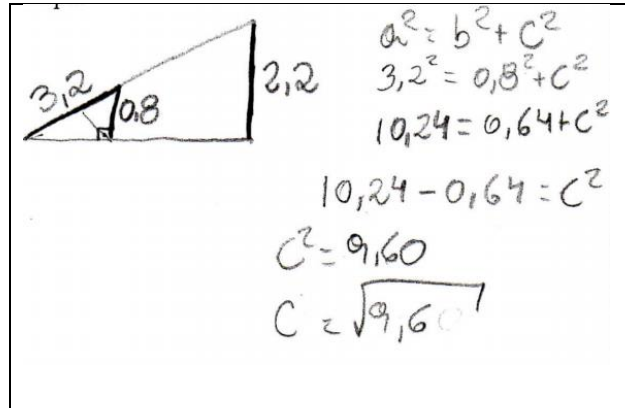 3,2
0,8
2,2
a² = b² + c²
3,2² = 0,8² + c²
10,24 = 0,64 + c²
10,24 - 0,64 = c²
c² = 9,60
c = √9,60